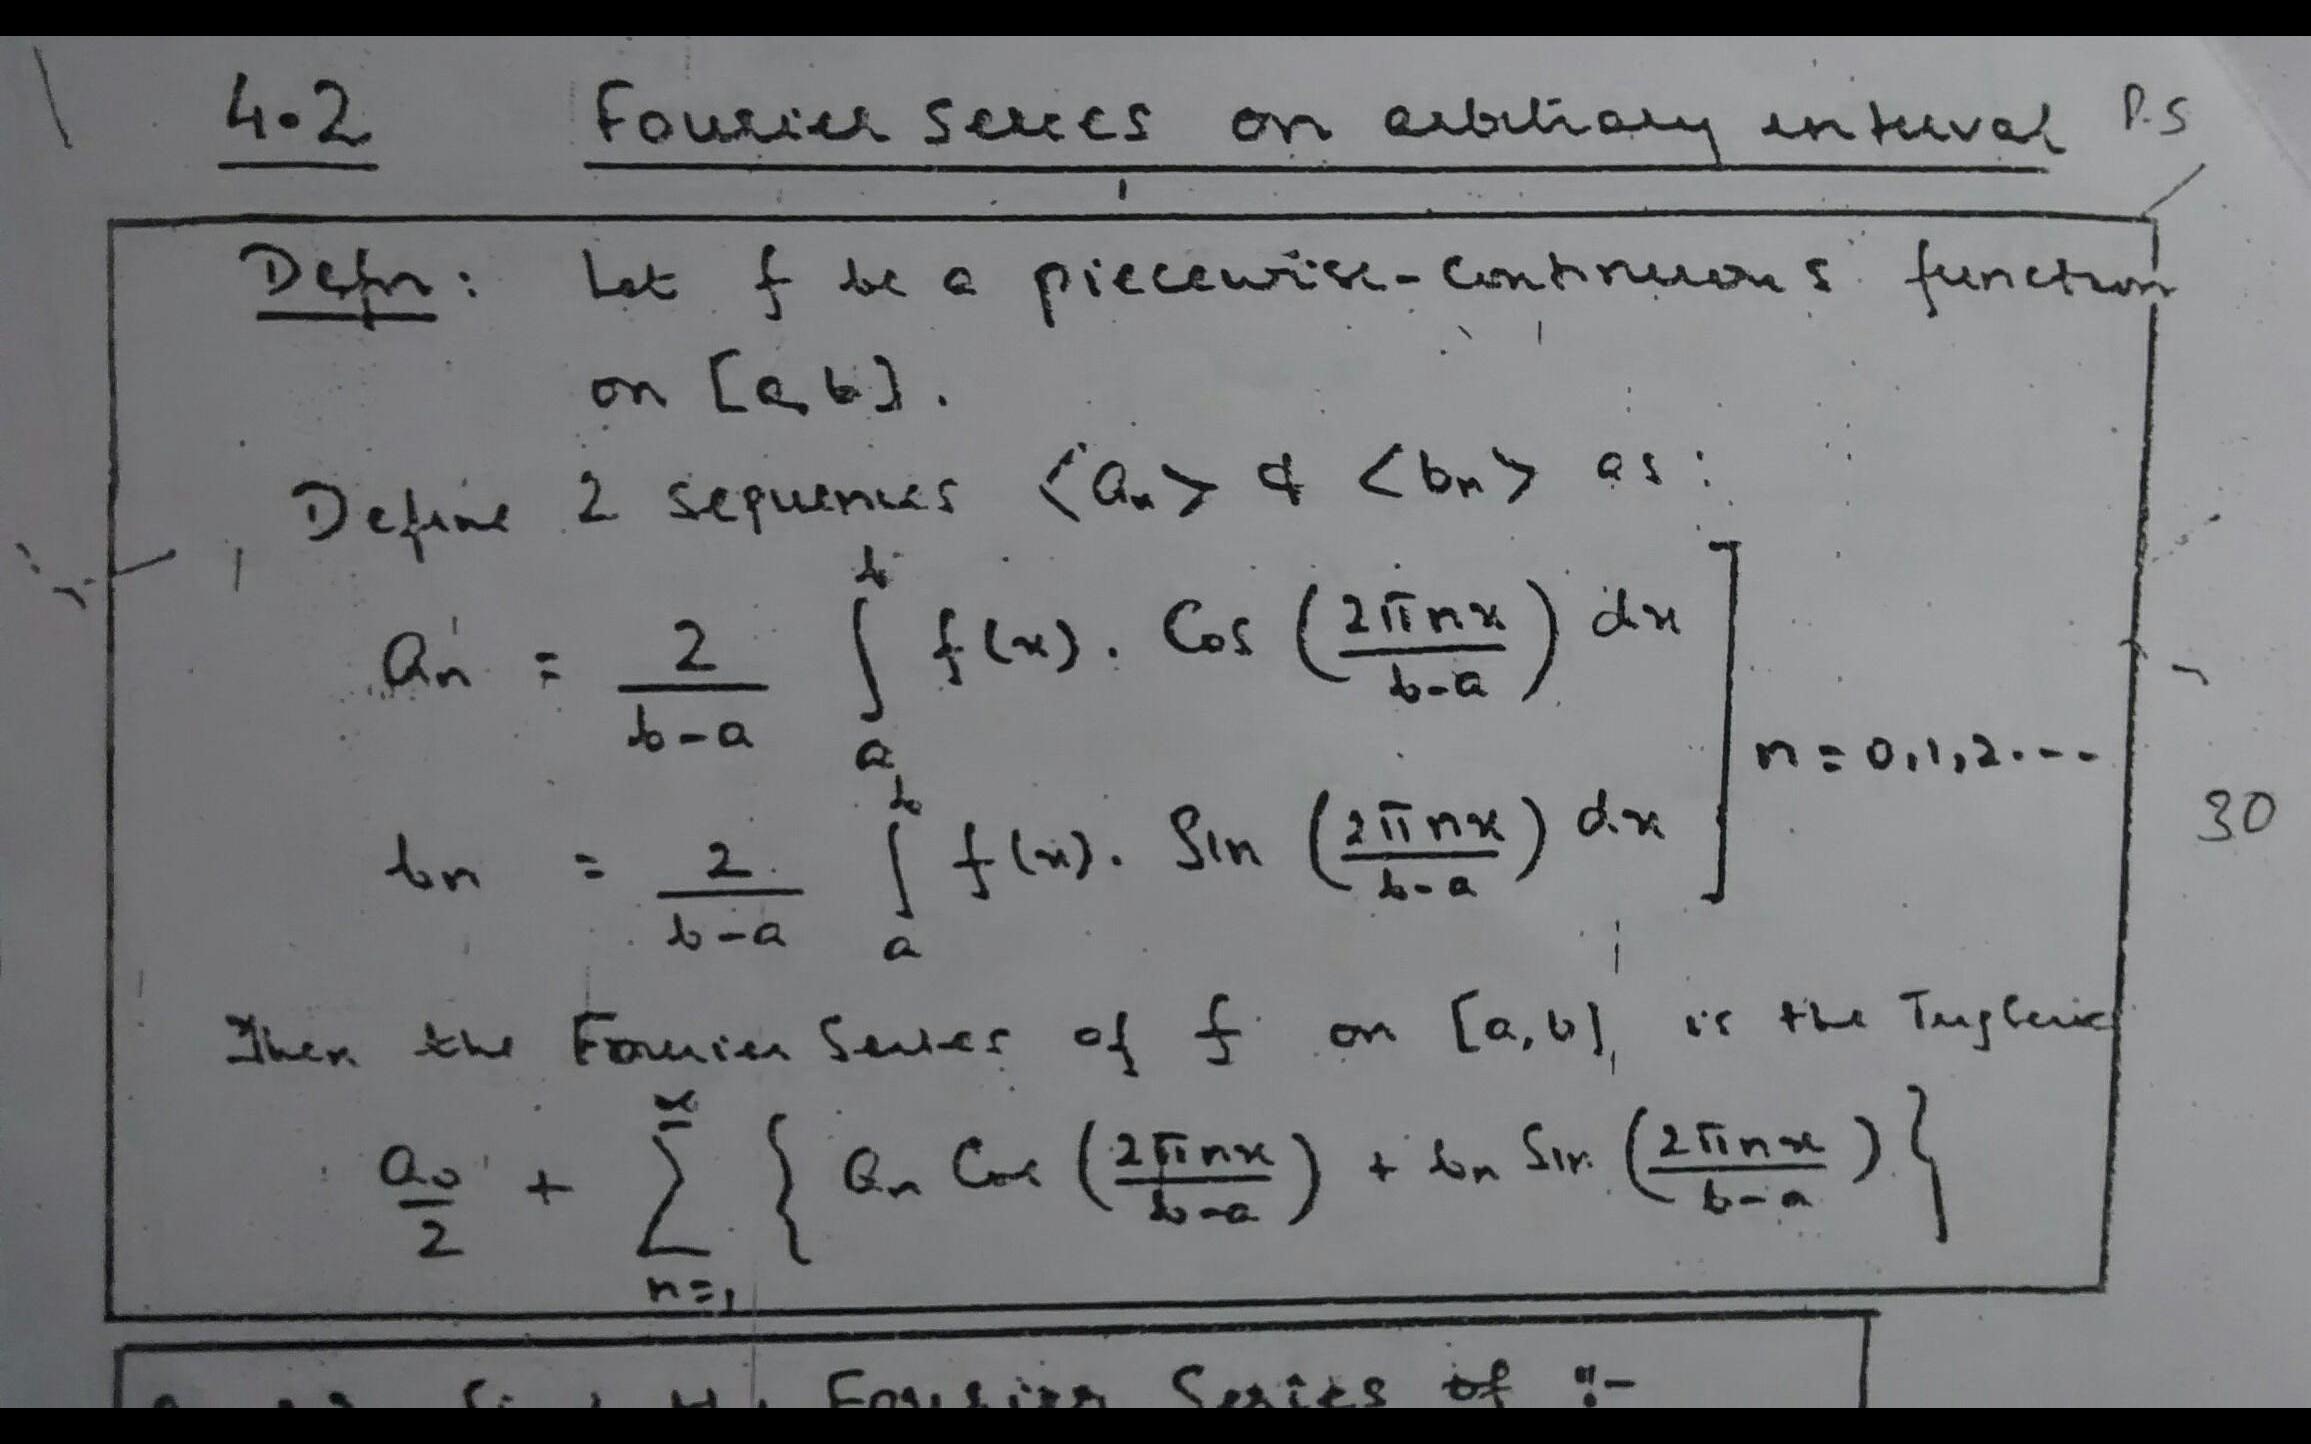 4.2 Fourier Series on arbitrary interval P.S
Defn: Let f be a piecewise-continuous function
on [a,b].
Define 2 sequences <an> & <bn> as:
an = 2/(b-a) ∫_a^b f(x). Cos (2πnx/(b-a)) dx
n = 0,1,2....
30
bn = 2/(b-a) ∫_a^b f(x). Sin (2πnx/(b-a)) dx
Then the Fourier Series of f on [a,b] is the
a0/2 + ∑_{n=1}^∞ { an Cos (2πnx/(b-a)) + bn Sin (2πnx/(b-a)) }
Fourier Series of :-